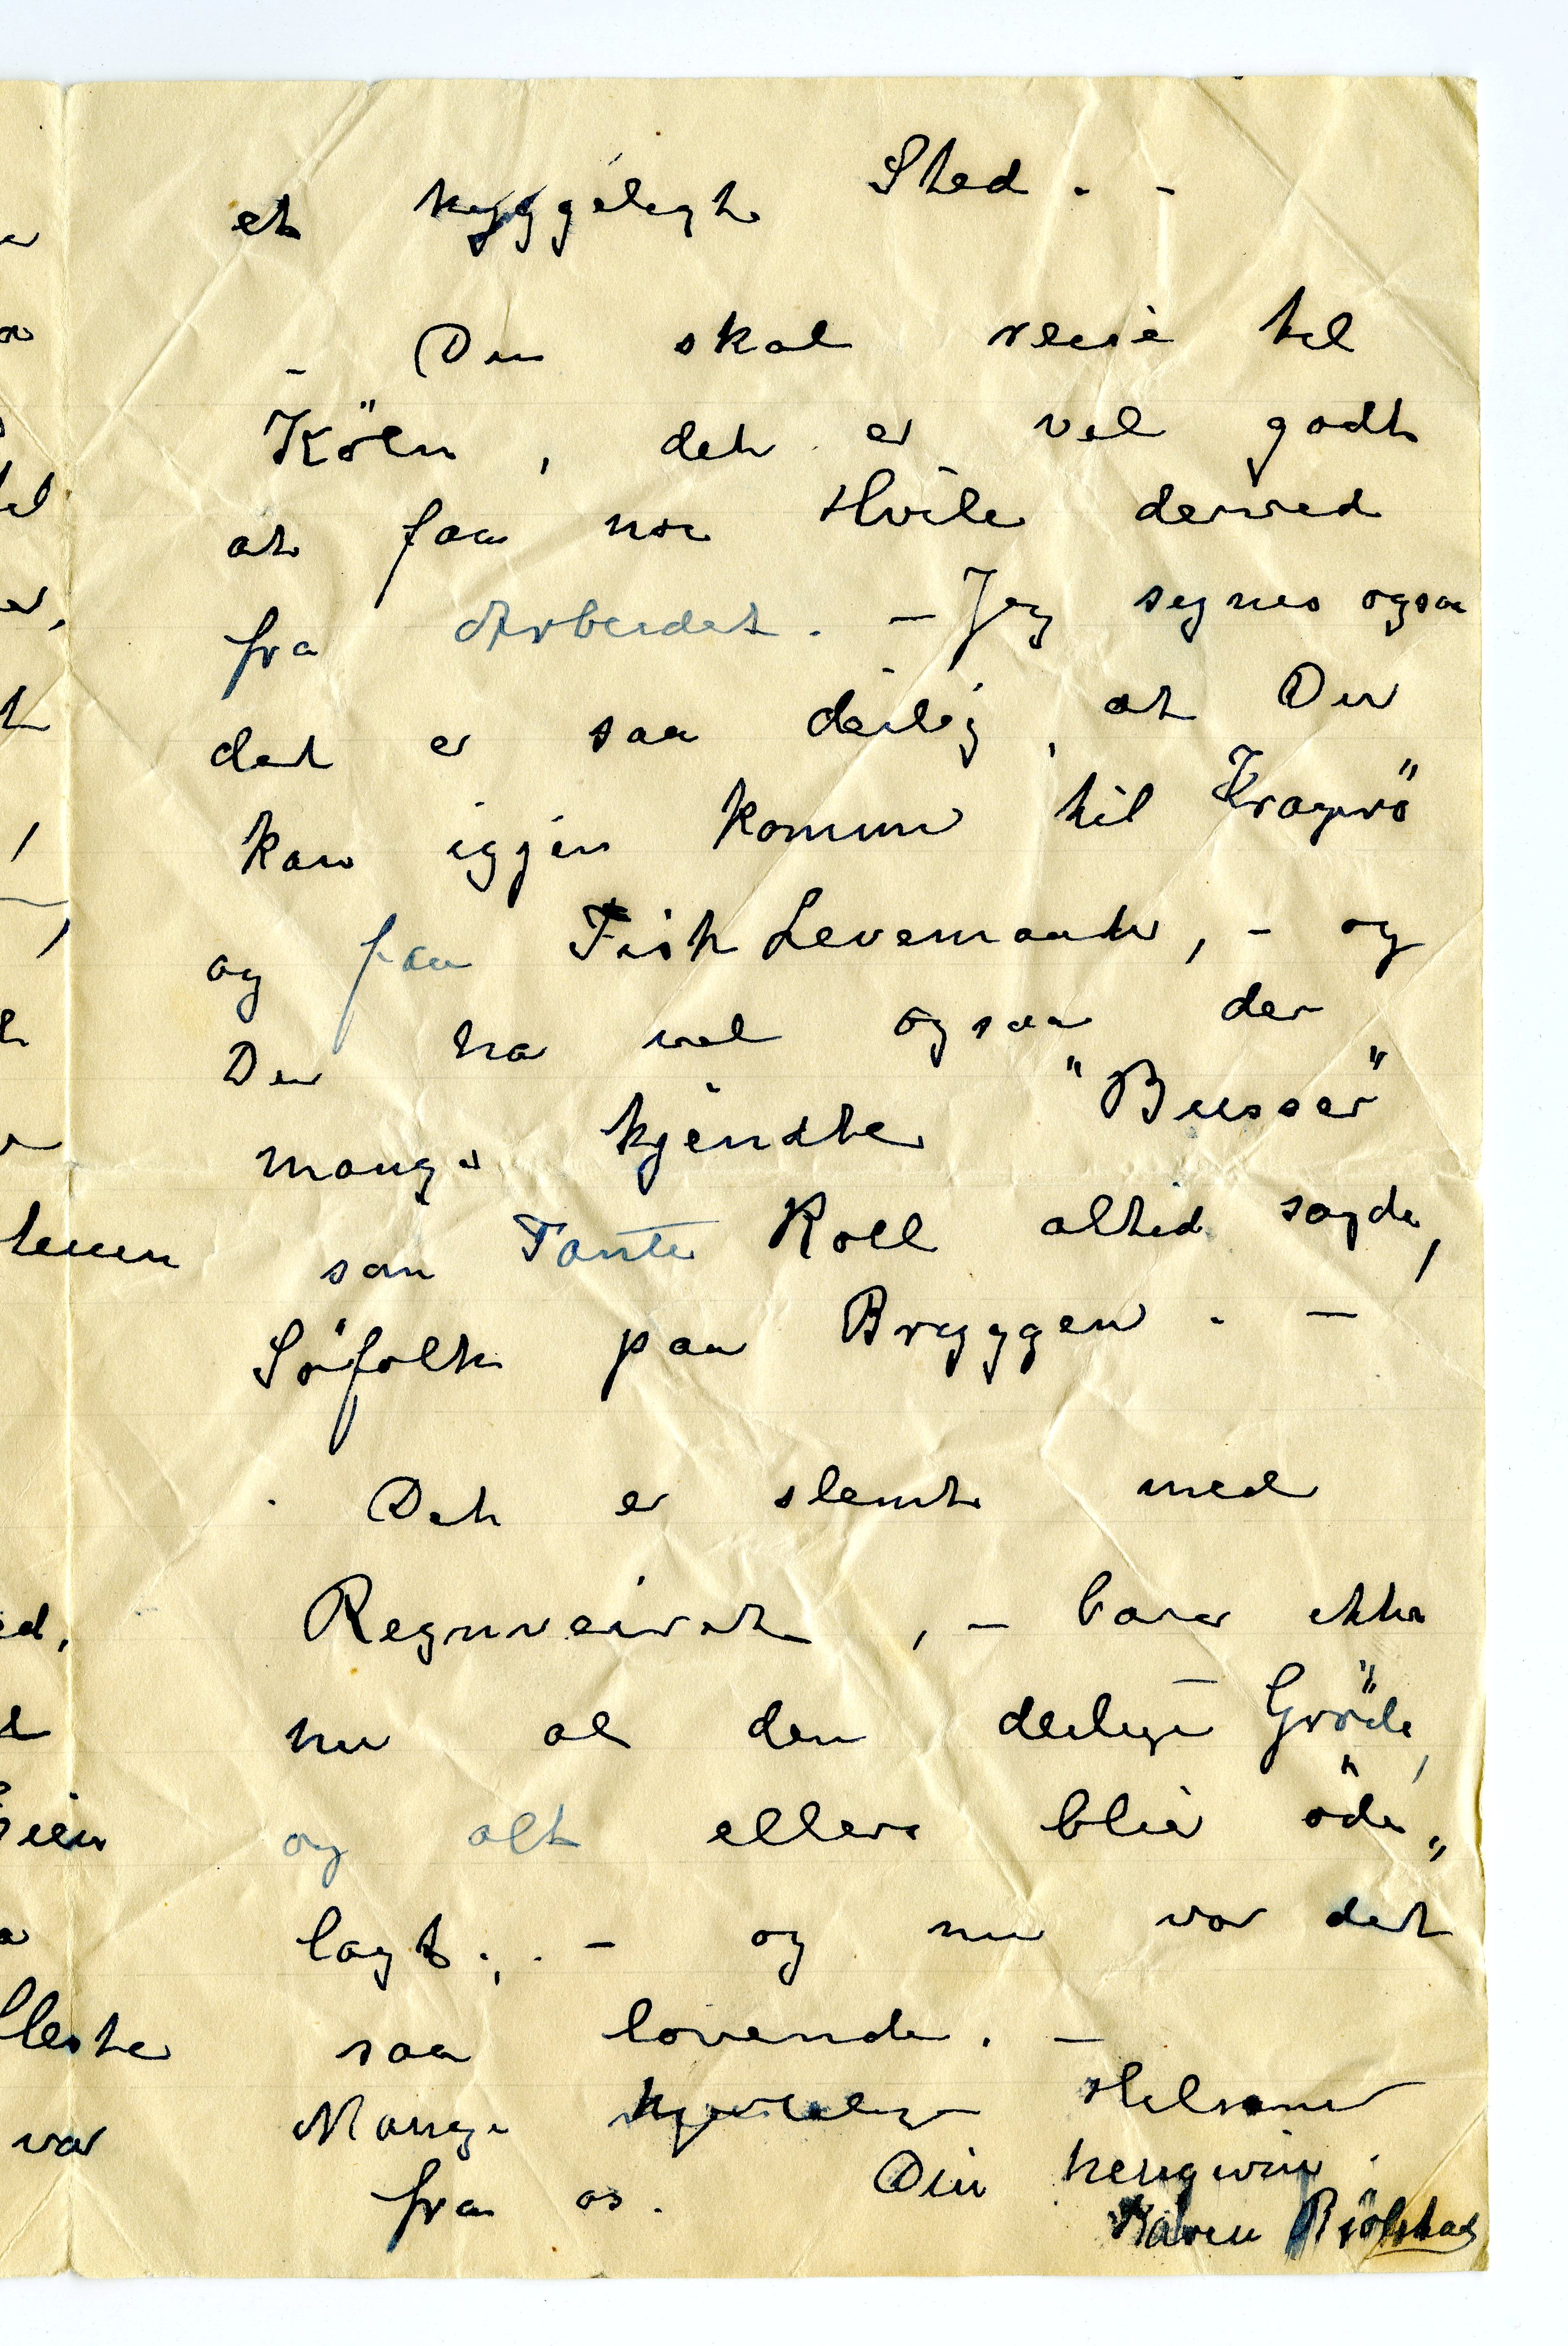 et hyggeligt Sted. -
- Du skal reise til
Köln, det er vel godt
at faa noe Hvile derved
fra Arbeidet. - Jeg synes ogsaa
det er saa deilig, at Du
kan igjen komme til Kragerö
og faa Fisk Levemaade, - og
Du ha vel ogsaa der
mange kjendte "Busser"
som Tante Roll altid sagde,
Söfolk paa Bryggen. -
Det er slemt med
Regnveiret, - bare ikke
nu al den deilige Gröde,
og alt ellers blir öde„
lagt., . - og nu var det
saa lovende. -
Mange hjertelige Hilsener
fra os. Din hengivne.
Karen Bjölstad